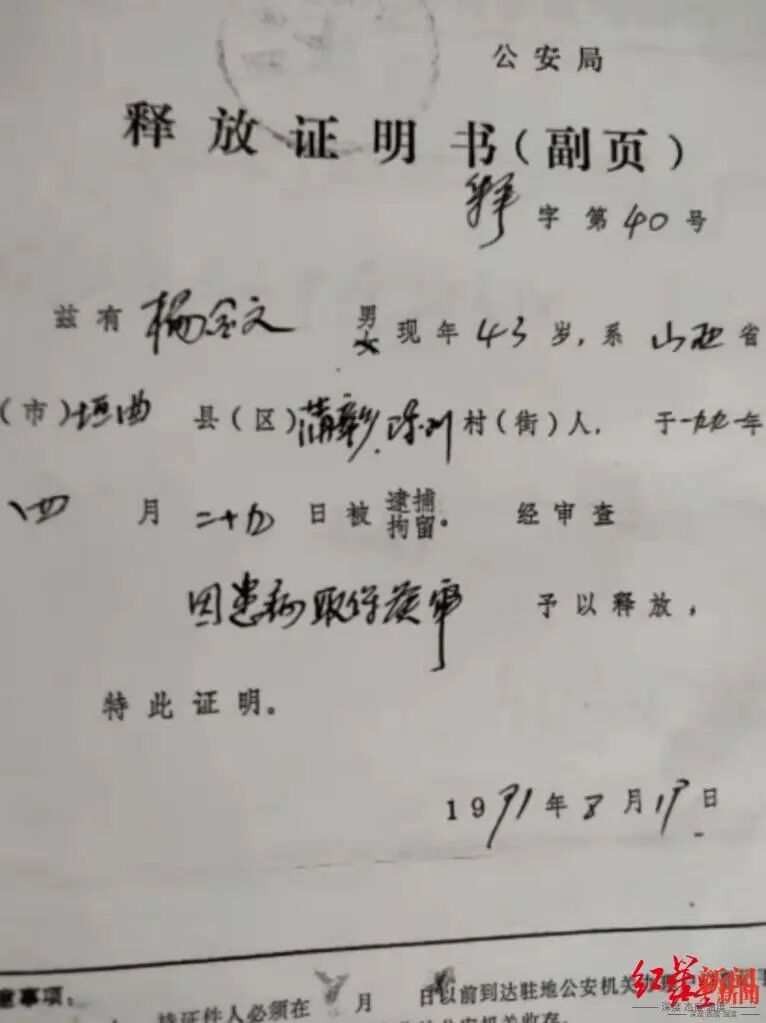 公安局
释放证明书(副页)
释字第40号
兹有杨金文 男女现年43岁,系山西省
(市)垣曲县(区)蒲掌乡陈川村(街)人.于一九九一年
四月二十九日被逮捕拘留。经审查
因患病取保候审 予以释放,
特此证明。
1991年8月17日
意事项:
持证件人必须在 月 日以前到达驻地公安机关办理
公安机关收存。
红星新闻
深度 态度 温度